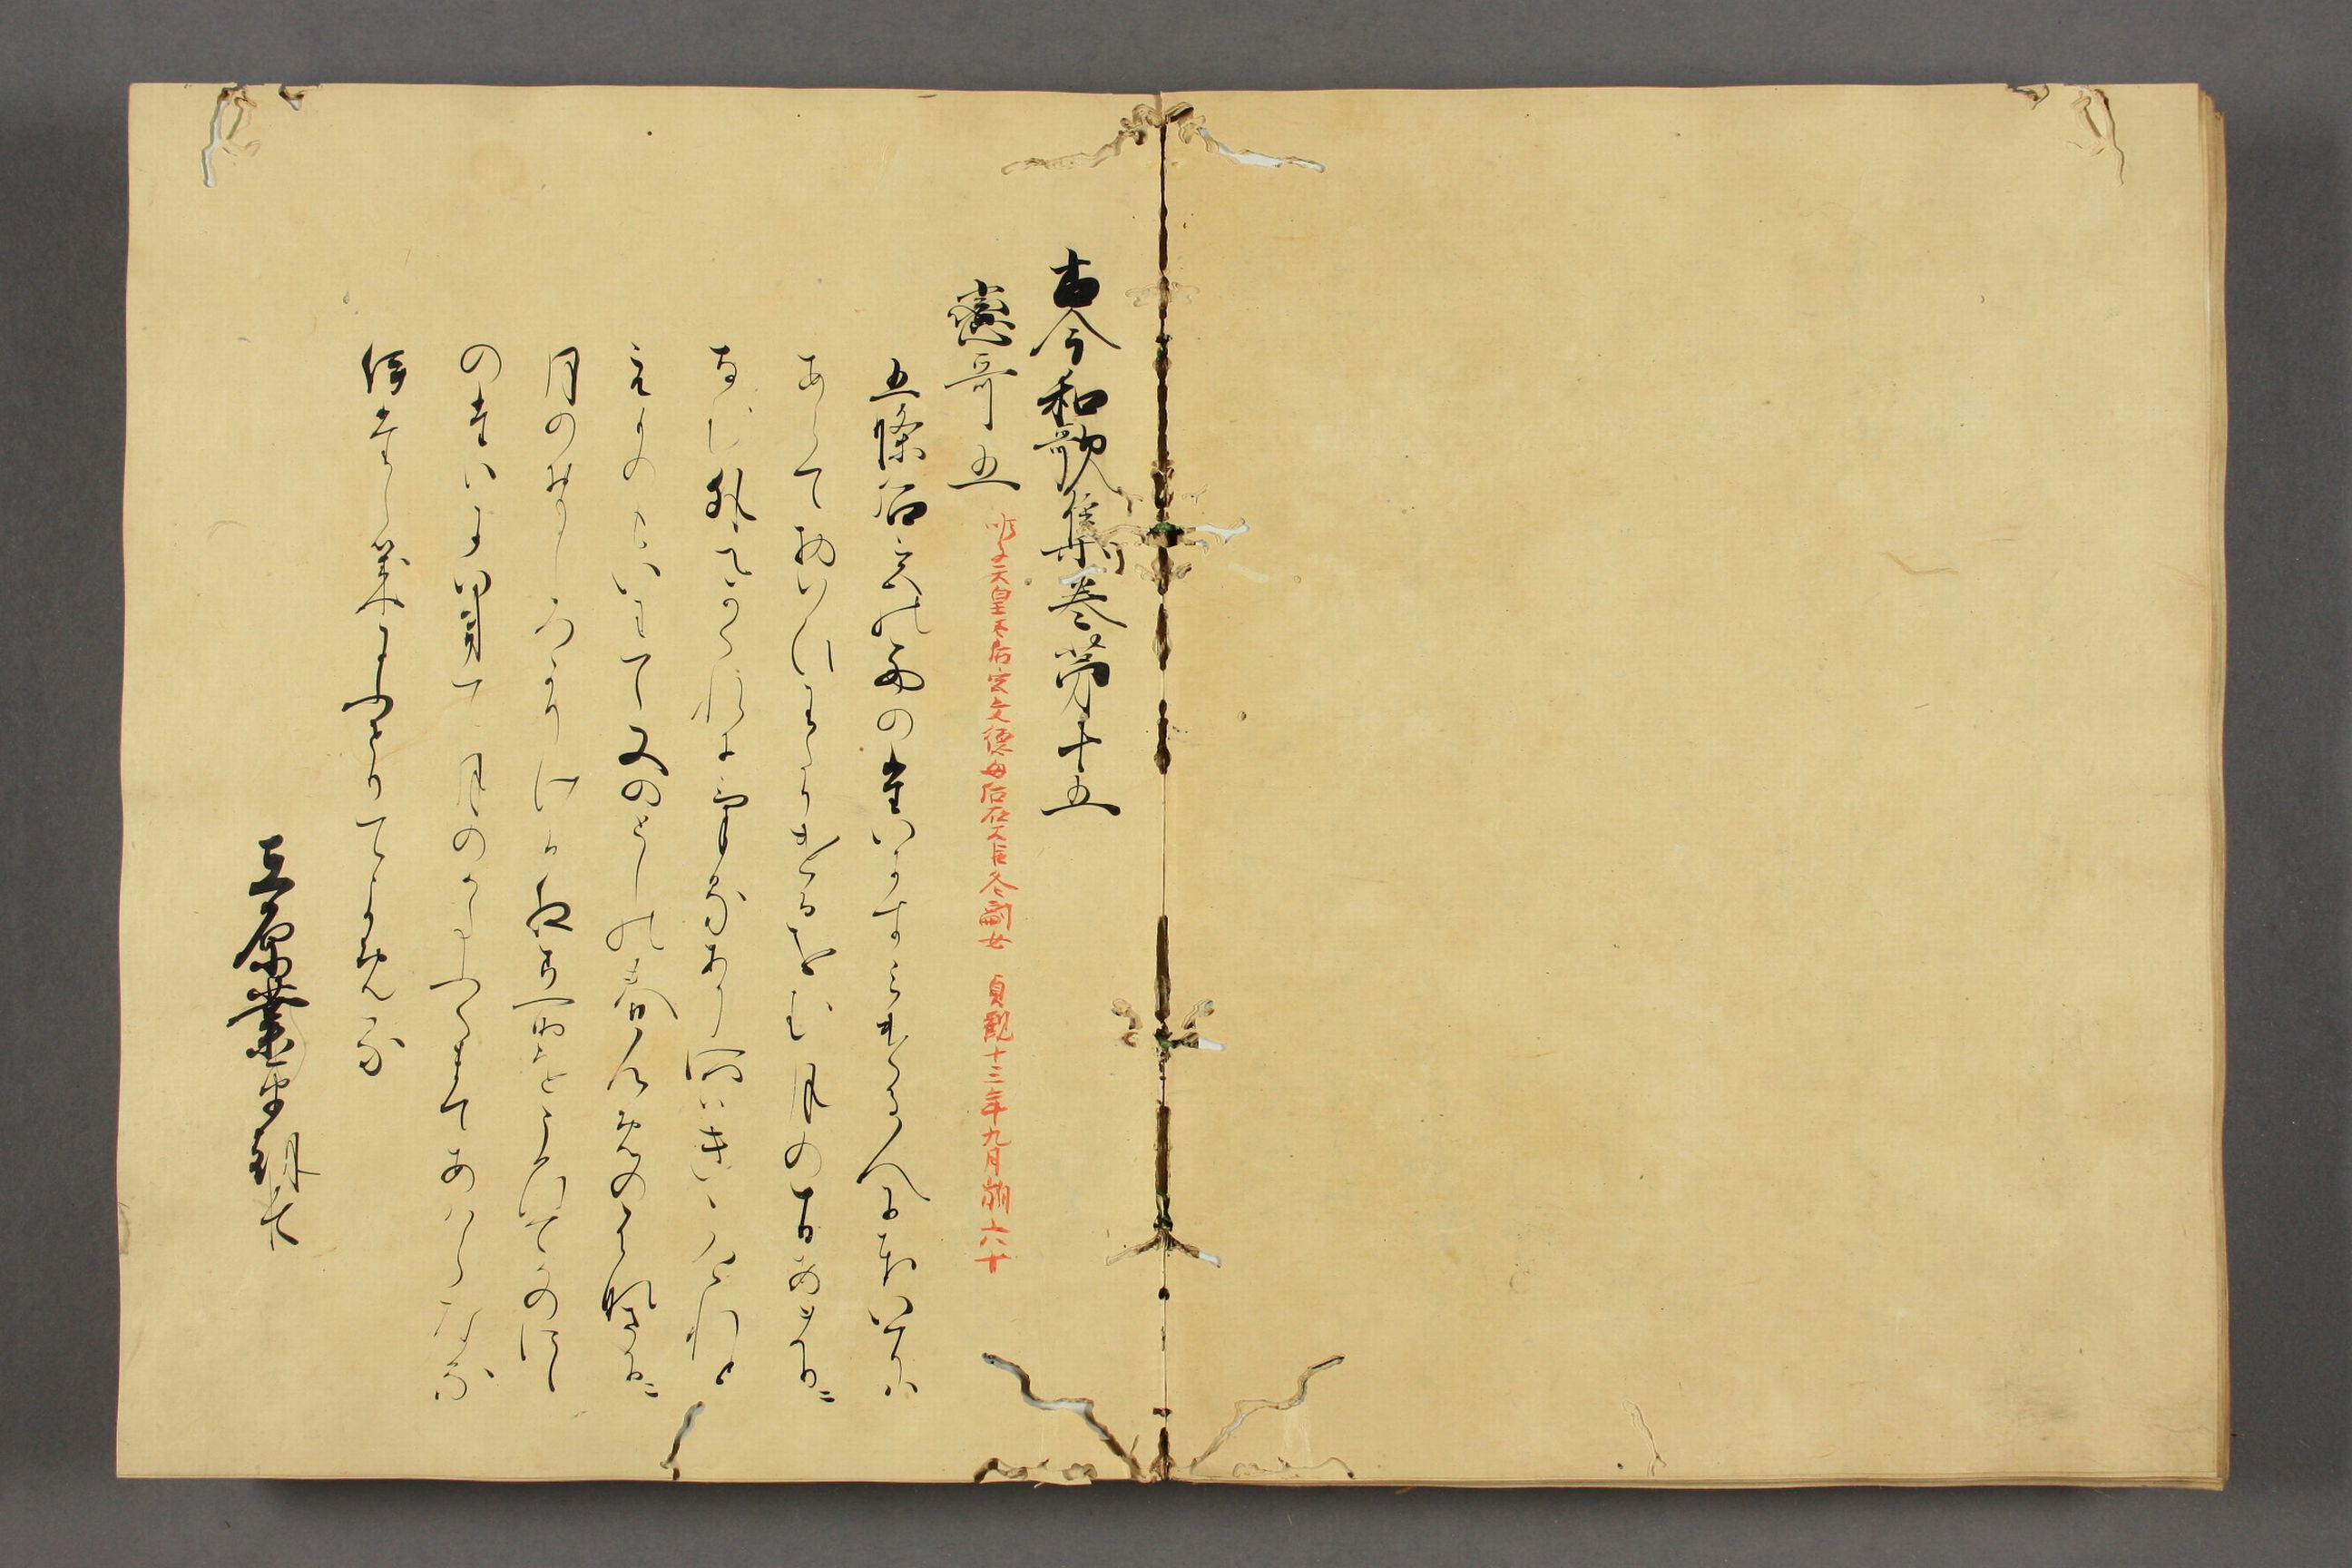 古今和歌集巻第十五
戀哥五
仁明天皇太后宮文徳母后左大臣冬嗣女　貞観十三年九月崩六十
五條后宮の西の対にすみける人にほいには
あらて物いひわたりけるをむ月の十日あまりに
なむ外へかくれにけるあり所はきゝけれと
え物もいはて又のとしの春むめの花さかりに
月のおもしろかりける夜こそをこひてかのにし
のたいにいきて月のかたふくまてあはらなる
板しきにふせりてよめる
在原業平朝臣